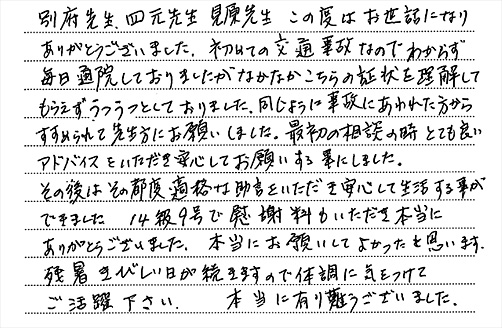 別府先生、四元先生 見原先生 この度はお世話になり
ありがとうございました。初めての交通事故なのでわからず
毎日通院しておりましたがなかなかこちらの証状を理解して
もらえずうつうつとしておりました。同じように事故にあわれた方から
すすめられて先生方にお願いしました。最初の相談の時とても良い
アドバイスをいただき安心してお願いする事にしました。
その後はその都度適格な助言をいただき安心して生活する事が
できました 14級9号で慰謝料もいただき本当に
ありがとうございました。本当にお願いしてよかったと思います。
残暑きびしい日が続きますので体調に気をつけて
ご活躍下さい。 本当に有り難うございました。